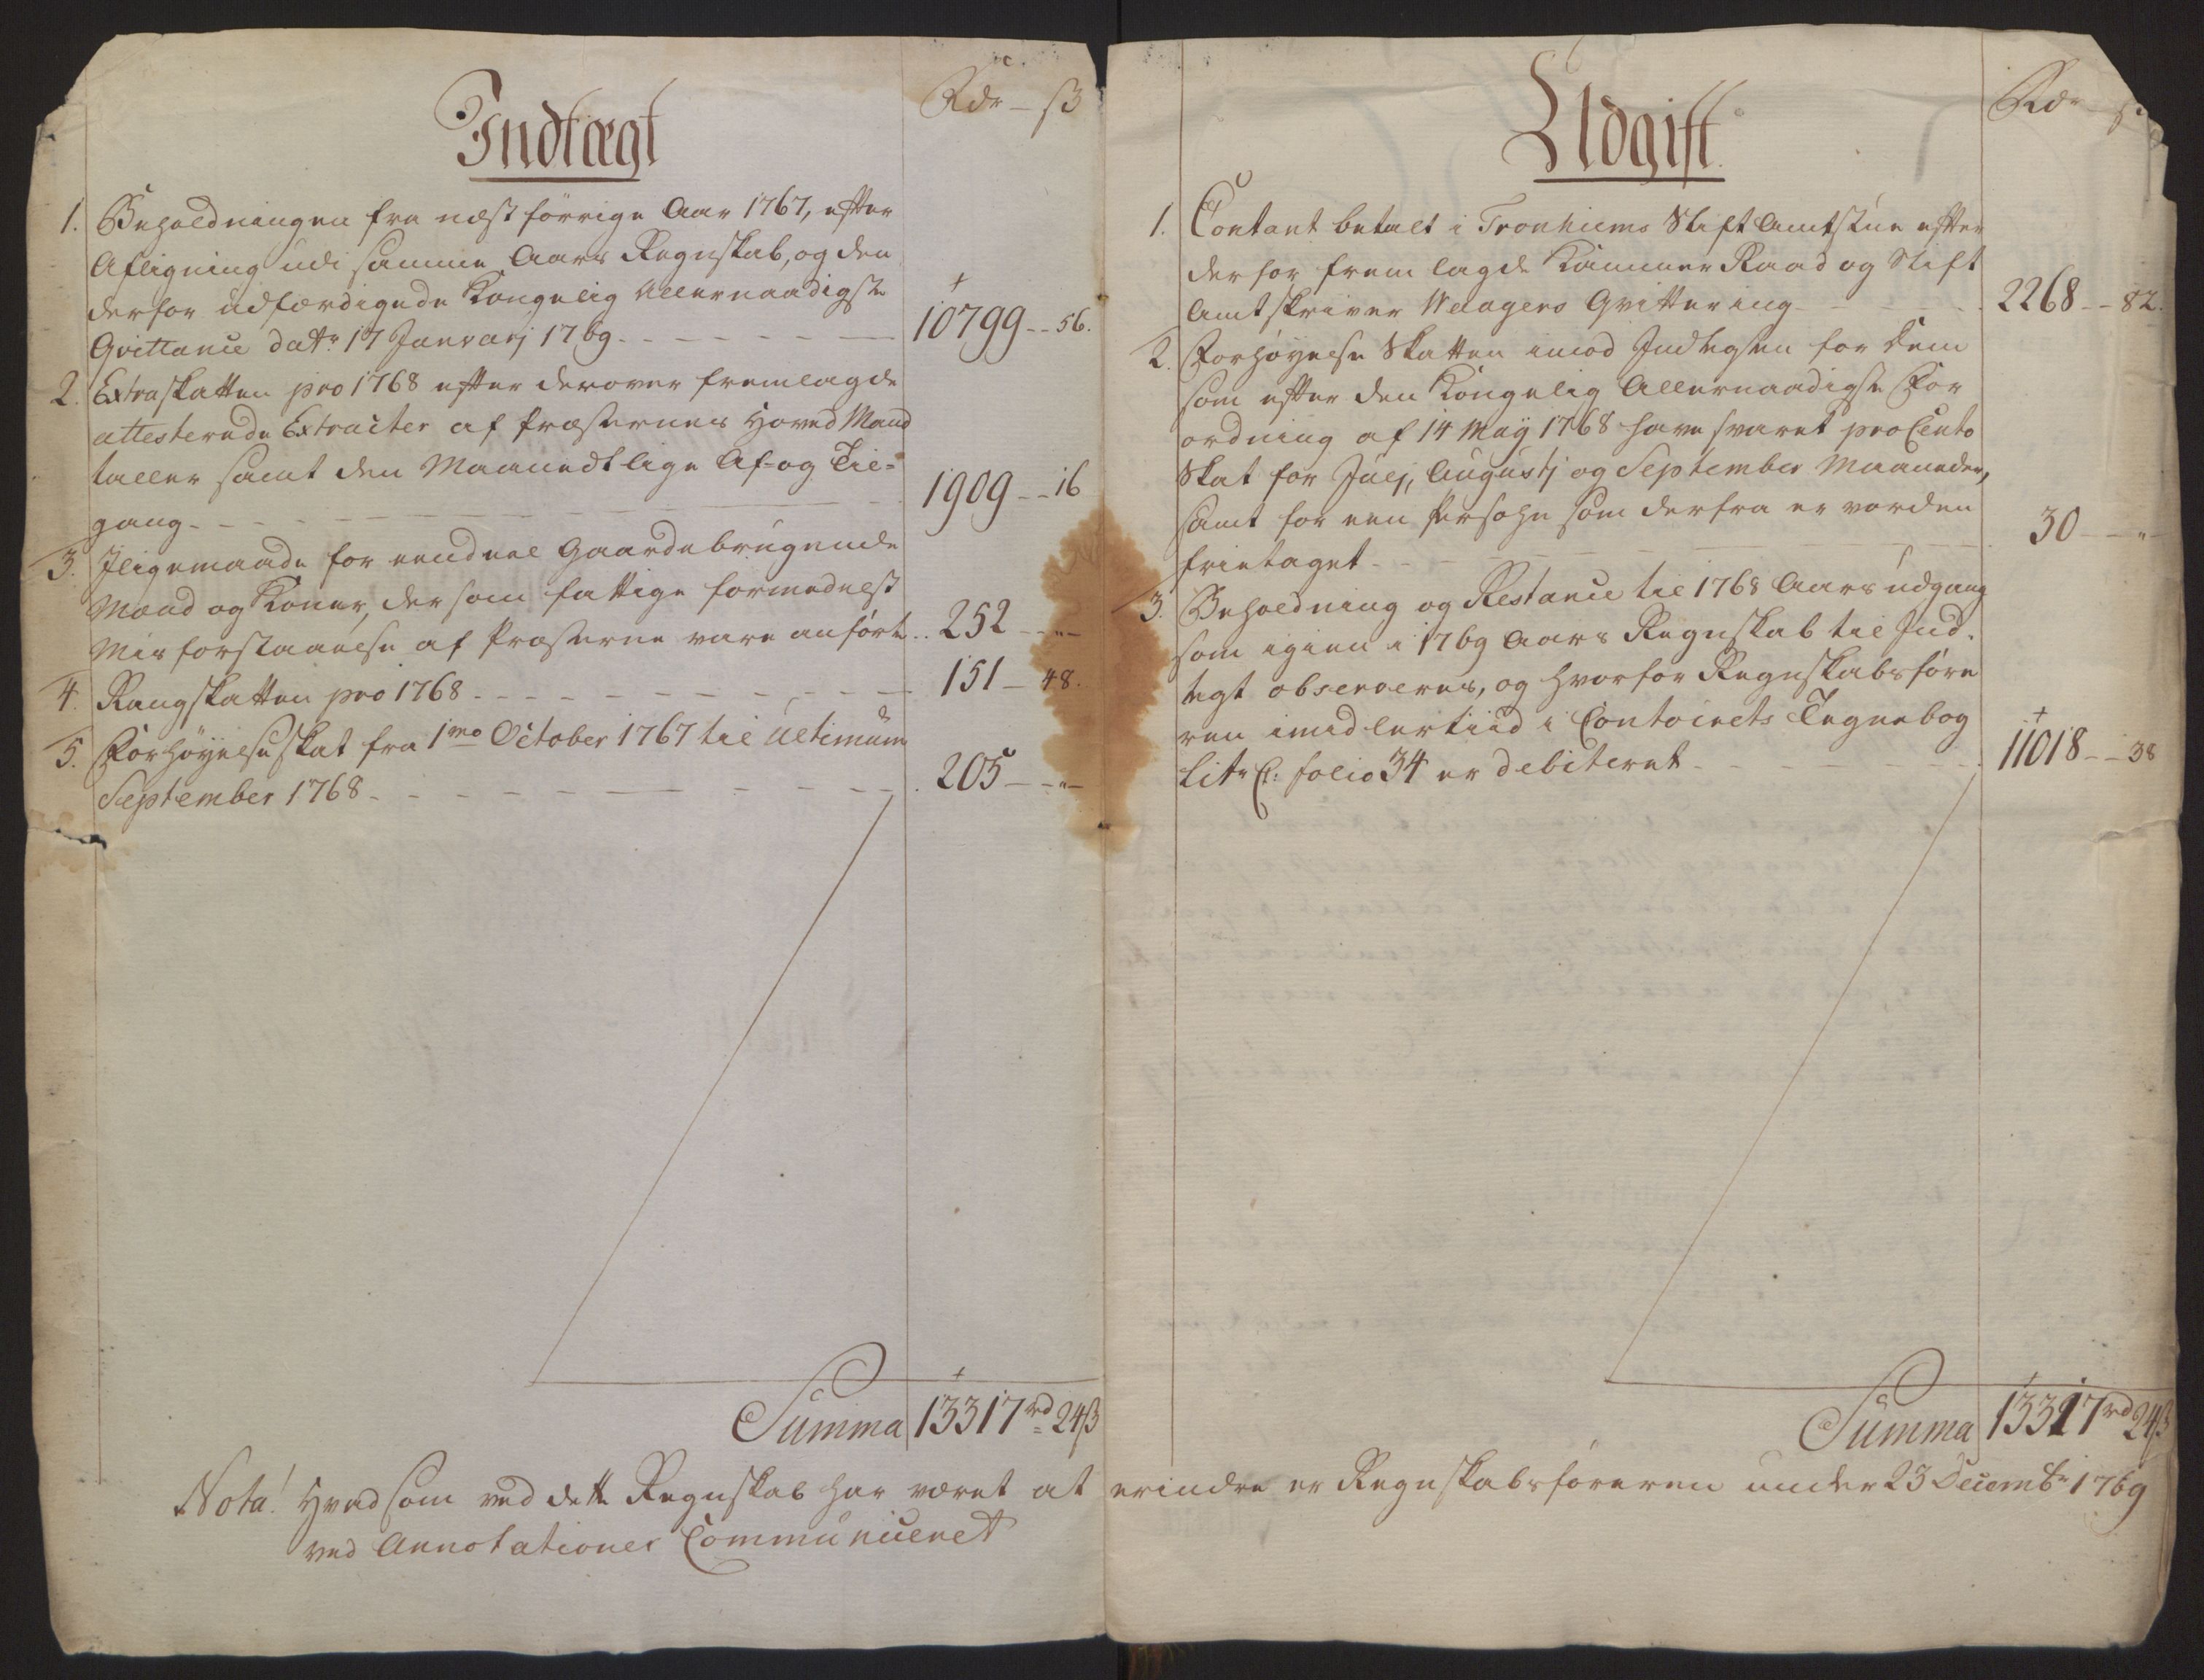 Indtægt
Rdr — ß
1. Beholdningen fra næst förrige Aar 1767, efter
Afligning udi samme Aars Regnskab, og den
derfor udfærdigede Kongelig Allernaadigste
Qvittance datr 17 Janvarj 1769 10799 - - 56.
2. Extraskatten pro 1768 efter derover fremlagde
attesterede Extracter af Præsternes Hoved Mand
taller samt den Maanedtlige Af- og Til-
gang 1909 - - 16
3. Iligemaade for eendeel Gaardebrugende
Mænd og Koner, der som fattige formedelst
Misforstaaelse af Præsterne vare anfört 252 - - „ -
4. Rangskatten pro 1768 151 - 48.
5. Forhöyelse skat fra 1mo October 1767 til Ultimum
September 1768 205 - - „ -
Summa 13317rd 24ß
Udgift
Rdr — ß
1. Contant betalt i Tronhiems Stift Amtstue efter
derfor fremlagde Kammer Raad og Stift
Amtskriver Welagers Qvittering 2268 - - 82.
2. Forhöyelse Skatten imod Indtegten for dem
som efter den Kongelig Allernaadigste For
ordning af 14 Maÿ 1768 have svaret pro Cento
Skat for Julj, Augustj og September Maaneder,
samt for een Persohn som derfra er vorden
frietaget 30 - - „ -
3. Beholdning og Restance til 1768 Aars udgang
som igien i 1769 Aars Regnskab til Ind-
tegt observeres, og hvorfor Regnskabsföre
ren imidlertiid i Contoirets Tegnebog
Litr C: folio 34 er debiteret 11018 - - 38
Summa 13317rd 24ß
Nota! Hvad som ved dette Regnskab har været at erindre er Regnskabsföreren under 23 Decembr 1769
ved Annotationer Communiceret